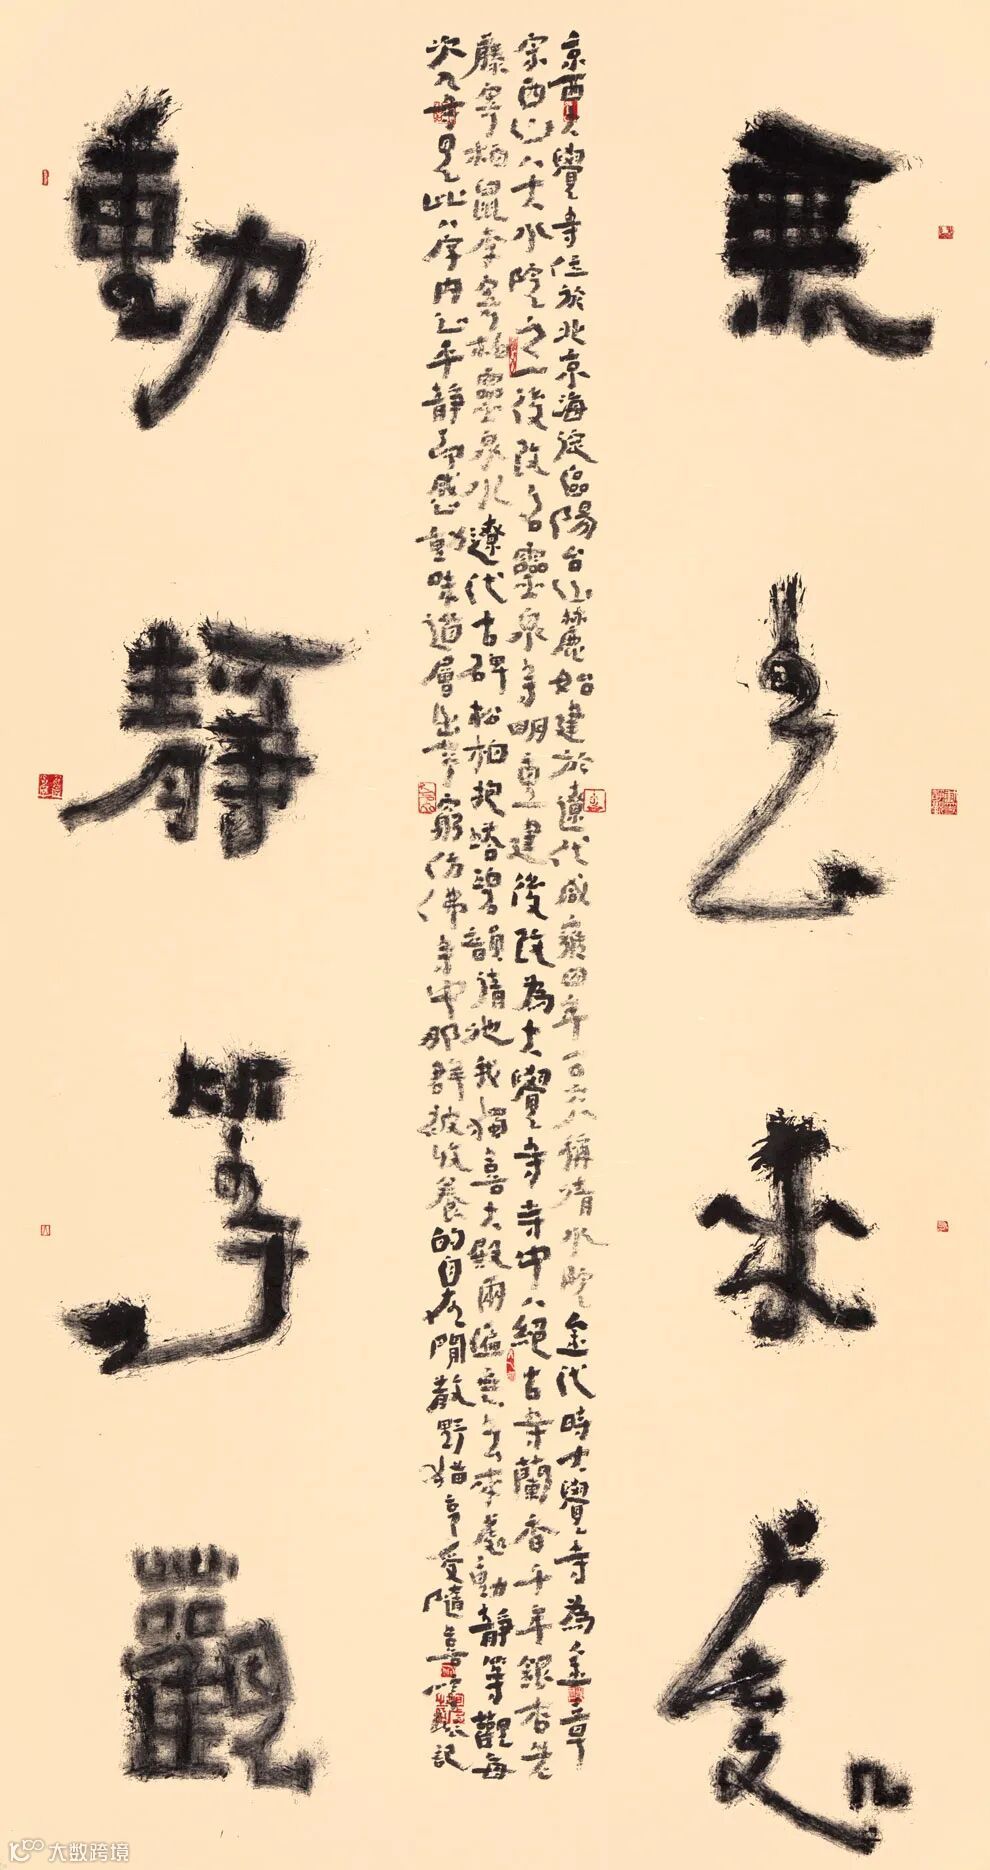 無去來處
京西大覺寺位於北京海淀區陽台山麓始建於遼代咸雍四年稱清水院金代時大覺寺為金章
宗西山八大水院之一後改名靈泉寺明重建後改為大覺寺寺中八絕古寺蘭香千年銀杏老
藤寄柏鼠李寄柏靈泉水遼代古碑松柏抱塔碧韻清池我獨喜大殿兩匾無去來處動靜等觀每
次入寺見此八字內心平靜而感動味道層出窮仿佛寺中那群被收養的自在閒散野貓享受隨喜記
動靜等觀
大数跨境